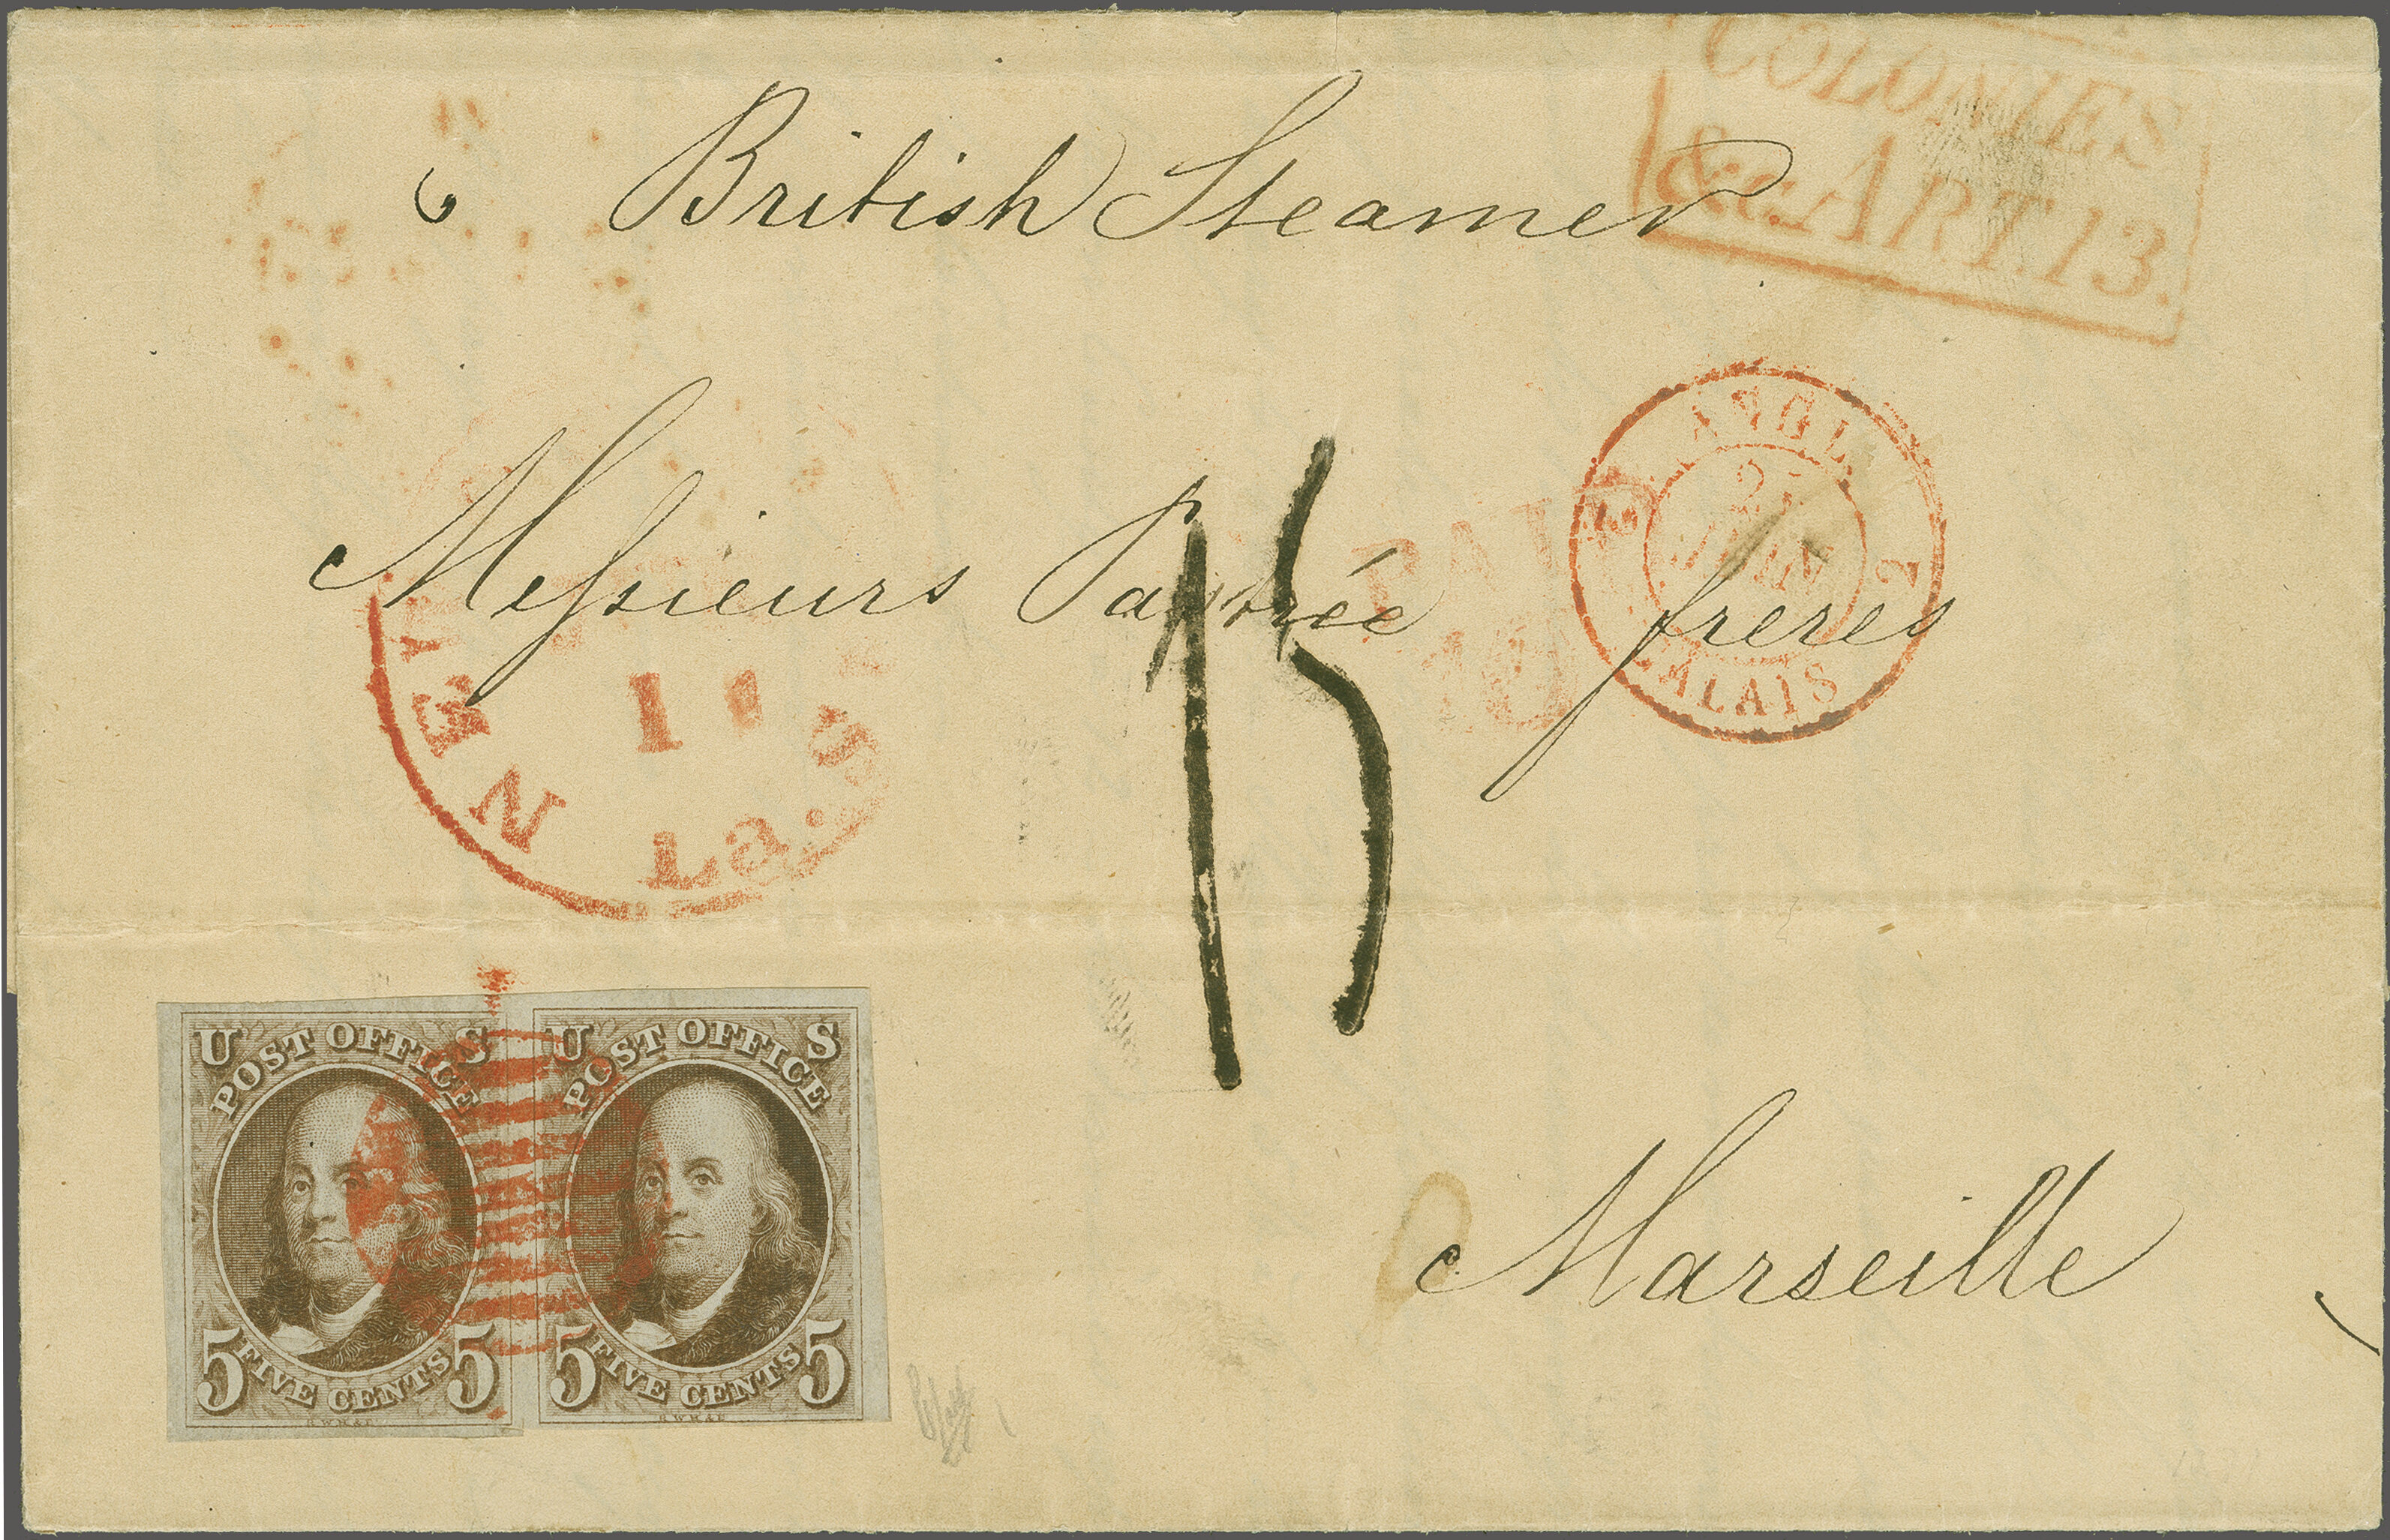 COLONIES
&c. ART. 13.
British Steamer
ANGL.
2
JUIN
2
CALAIS
PAID
10
Messieurs Pastrée frères
15
NEW
11
S
La.
Marseille
U S
POST OFFICE
5 FIVE CENTS 5
R.W.H.&E.
U S
POST OFFICE
5 FIVE CENTS 5
R.W.H.&E.